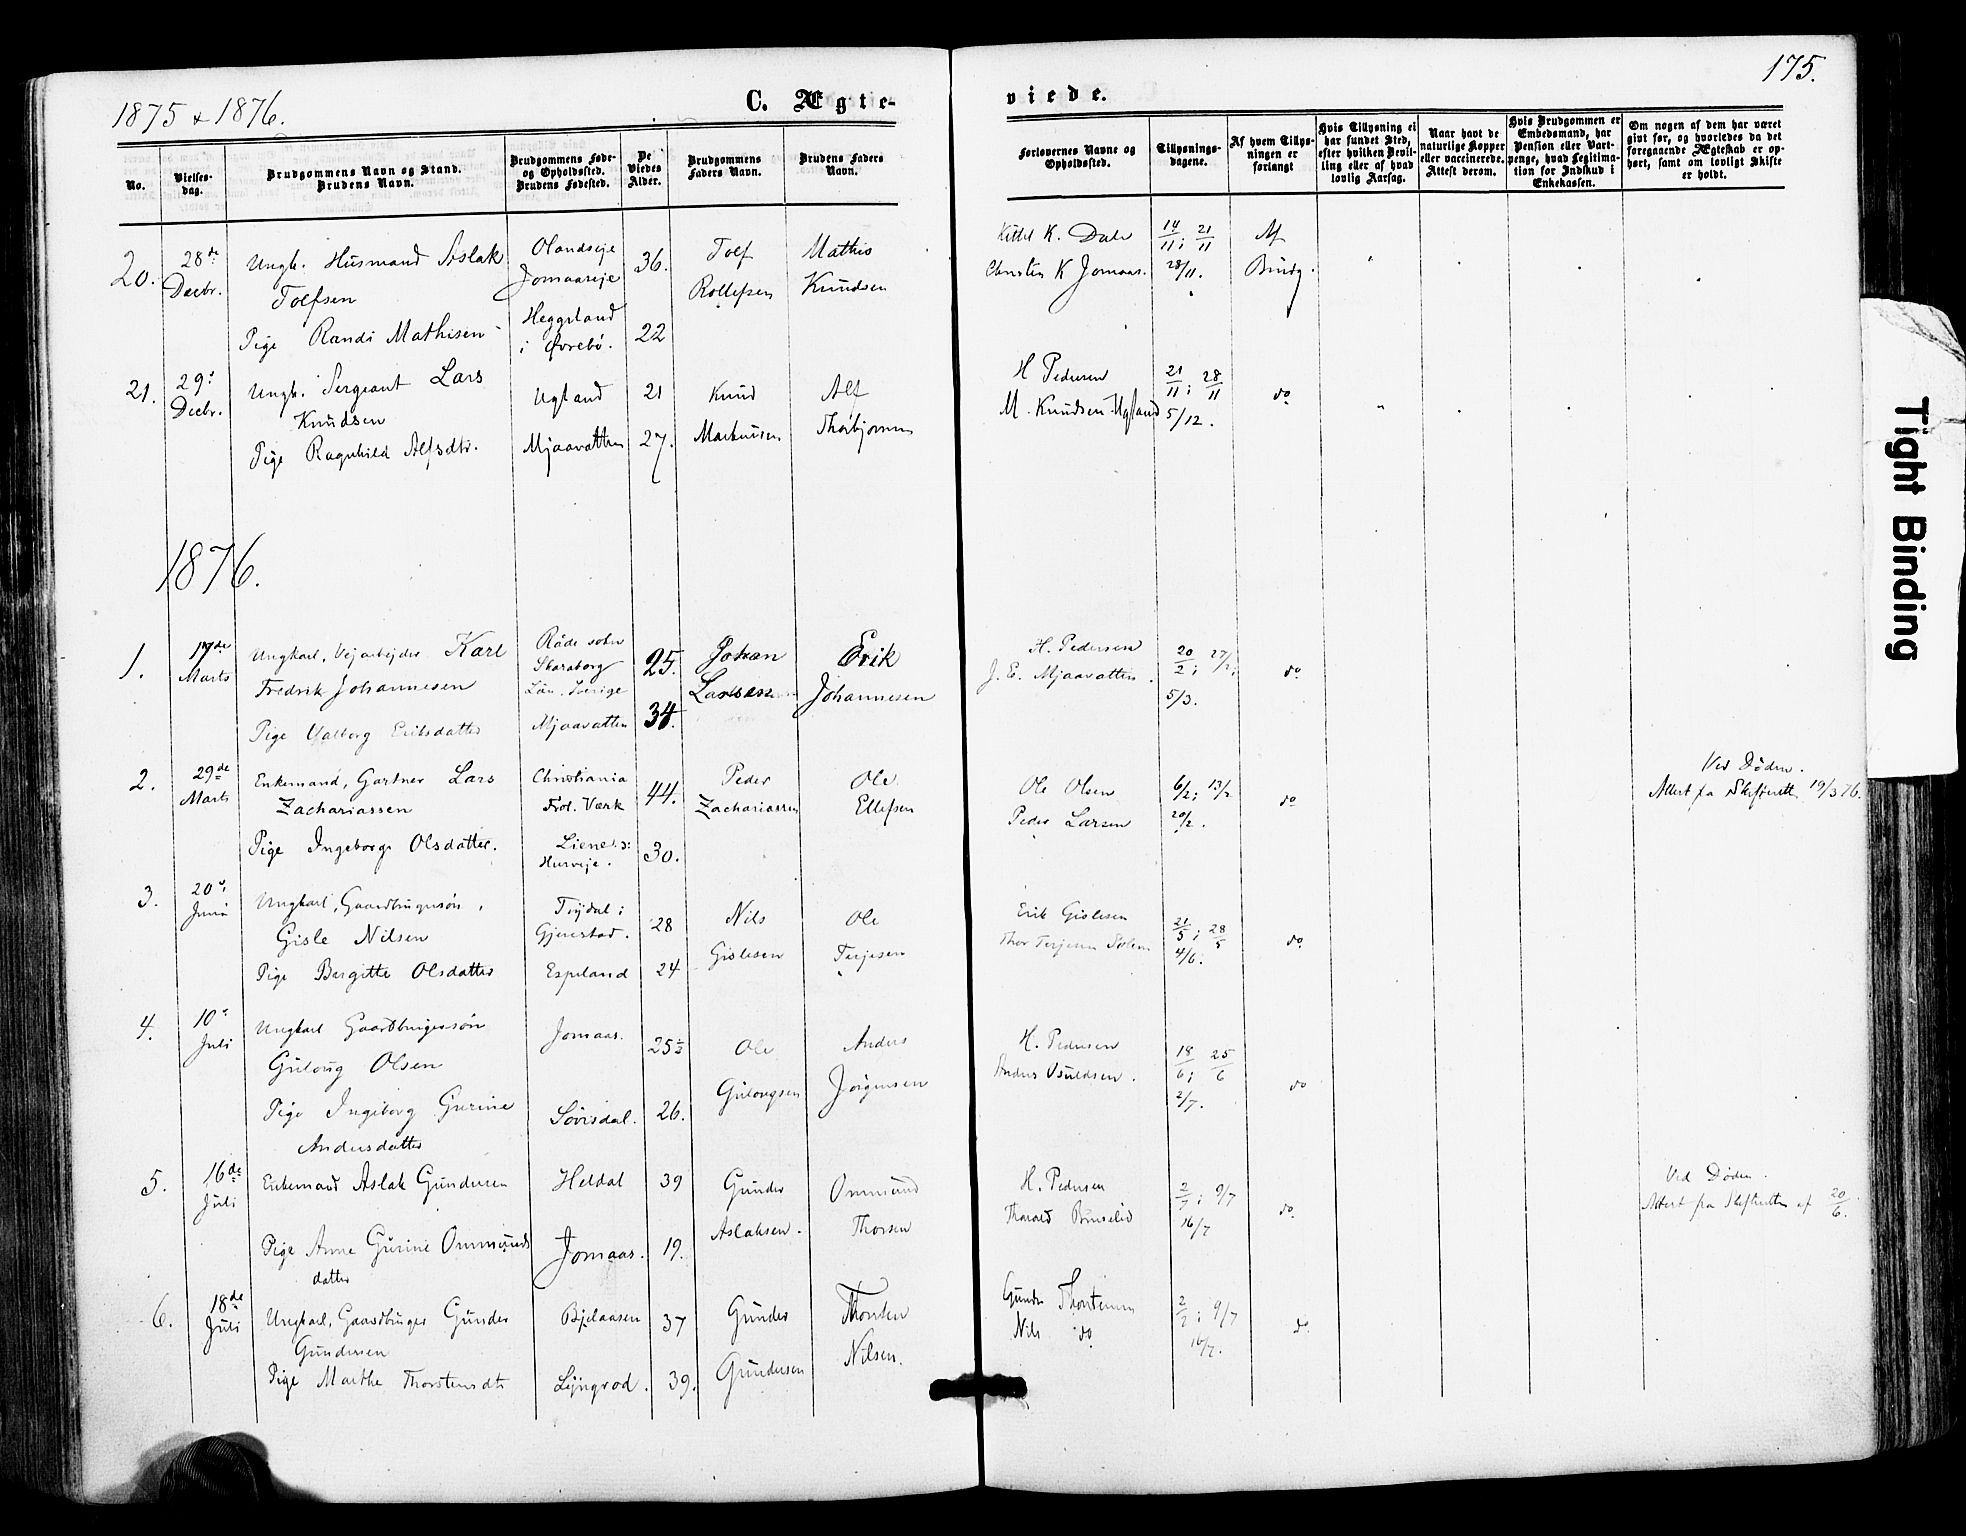 1875 & 1876.
C. Ægte-
viede.
175.
No.
Vielses-
dag.
Brudgommens Navn og Stand.
Brudens Navn.
Brudgommens Føde-
og Opholdssted.
Brudens Fødested.
De
Viedes
Alder.
Brudgommens
Faders Navn.
Brudens Faders
Navn.
Forlovernes Navne og
Opholdssted.
Tillysnings-
dagene.
Af hvem Tillys-
ningen er
forlangt
Hvis Tillysning ei
har fundet Sted,
efter hvilken Bevil-
ling eller af hvad
lovlig Aarsag.
Naar havt de
naturlige Kopper
eller vaccinerede.
Attest derom.
Hvis Brudgommen er
Embedsmand, har
Pension eller Vart-
penge, hvad Legitima-
tion for Indskud i
Enkekassen.
Om nogen af dem har været
gift før, og hvorledes da det
foregaaende Ægteskab er op-
hørt, samt om lovligt Skifte
er holdt.
20. 28de Decbr.
Ungk. Husmand Aslak
Tolfsen
Pige Randi Mathisen
Olandseje
Jomaaseje
Heggeland
i Øvrebø.
36.
22
Tolf
Rollefsen
Mathis
Knudsen
Kittel K. Dale
Christen K Jomaas.
14/11; 21/11
28/11.
Af
Brudg.
21. 29d Decbr.
Ungk. Sergeant Lars
Knudsen
Pige Ragnhild Alfsdtr.
Ugland
Mjaavatten
21
27.
Knud
Markussen
Alf
Thorbjørnsen
H Pedersen
M. Knudsen Ugland
21/11; 28/11
5/12.
do
1876.
1. 17de Marts
Ungkarl, Vejarbejder Karl
Fredrik Johannesen
Pige Valborg Eriksdatter
Råde sokn
Skaraborg
Län, Sverige
Mjaavatten
25.
34.
Johan
Larssen
Erik
Johannesen
H. Pedersen
J. E. Mjaavatten.
20/2; 27/2;
5/3.
do
2. 29de Marts
Enkemand, Gartner Lars
Zachariassen
Pige Ingeborg Olsdatter.
Christiania
Frol. Værk
Liene
Husveje.
44.
30.
Peder
Zachariassen
Ole
Ellefsen
Ole Olsen
Peder Larsen
6/2; 13/2
20/2.
do
Ved Døden.
Attest fra Skifteretten 19/3 76.
3. 20d Juni
Ungkarl, Gaardbrugersøn,
Gisle Nilsen
Pige Birgitte Olsdatter
Trydal i
Gjerestad.
Espeland
28
24
Nils
Gislesen
Ole
Terjesen
Erik Gislesen
Thor Terjesen Solem
21/5; 28/5
4/6.
do
4. 10d Juli
Ungkarl Gaardbrugersøn
Guloug Olsen
Pige Ingeborg Gurine
Andersdatter
Jomaas.
Søvisdal.
25½
26.
Ole
Gulougsen
Anders
Jörgensen
H. Pedersen
Anders Osuldsen.
18/6; 25/6
2/7.
do
5. 16de Juli
Enkemand Aslak Gundersen
Pige Anne Gurine Ommunds
datter
Heldal
Jomaas.
39
19.
Gunder
Aslaksen.
Ommund
Thorsen
H. Pedersen
Tharald Bruselid
2/7; 9/7
16/7
do.
Ved Døden.
Attest fra Skifteretten af 20/6.
6. 18de Juli
Ungkarl, Gaardbruger Gunder
Gundersen
Pige Marthe Thorstensdtr
Bjelaasen
Lyngrod.
37
39.
Gunder
Gundersen
Thorsten
Nilsen.
Gunder Thorstensen
Nils do
2/7; 9/7
16/7.
do.
Tight Binding